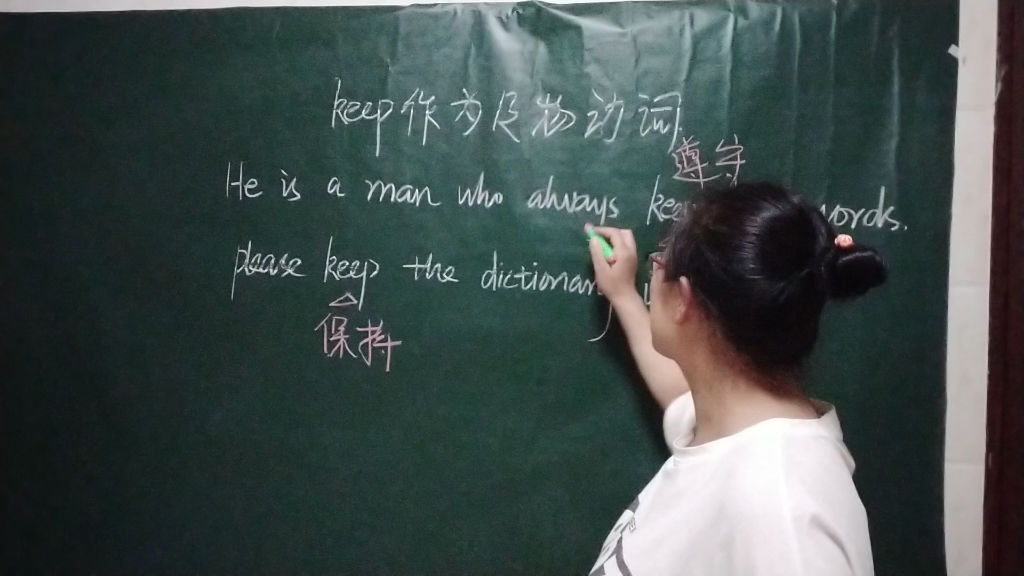 keep作为及物动词.
遵守
He is a man who always kee words.
please keep the dictionary
保持